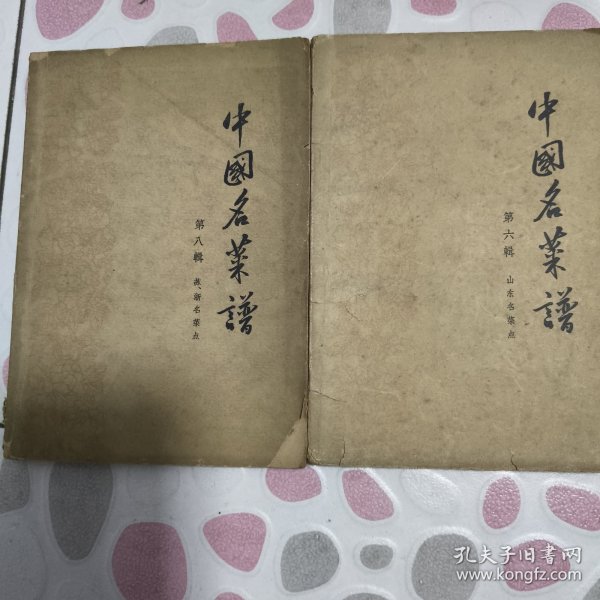 中國名菜譜
第八輯
蘇、浙名菜点
中國名菜譜
第六輯
山东名菜点
孔夫子旧书网
www.kongfz.com